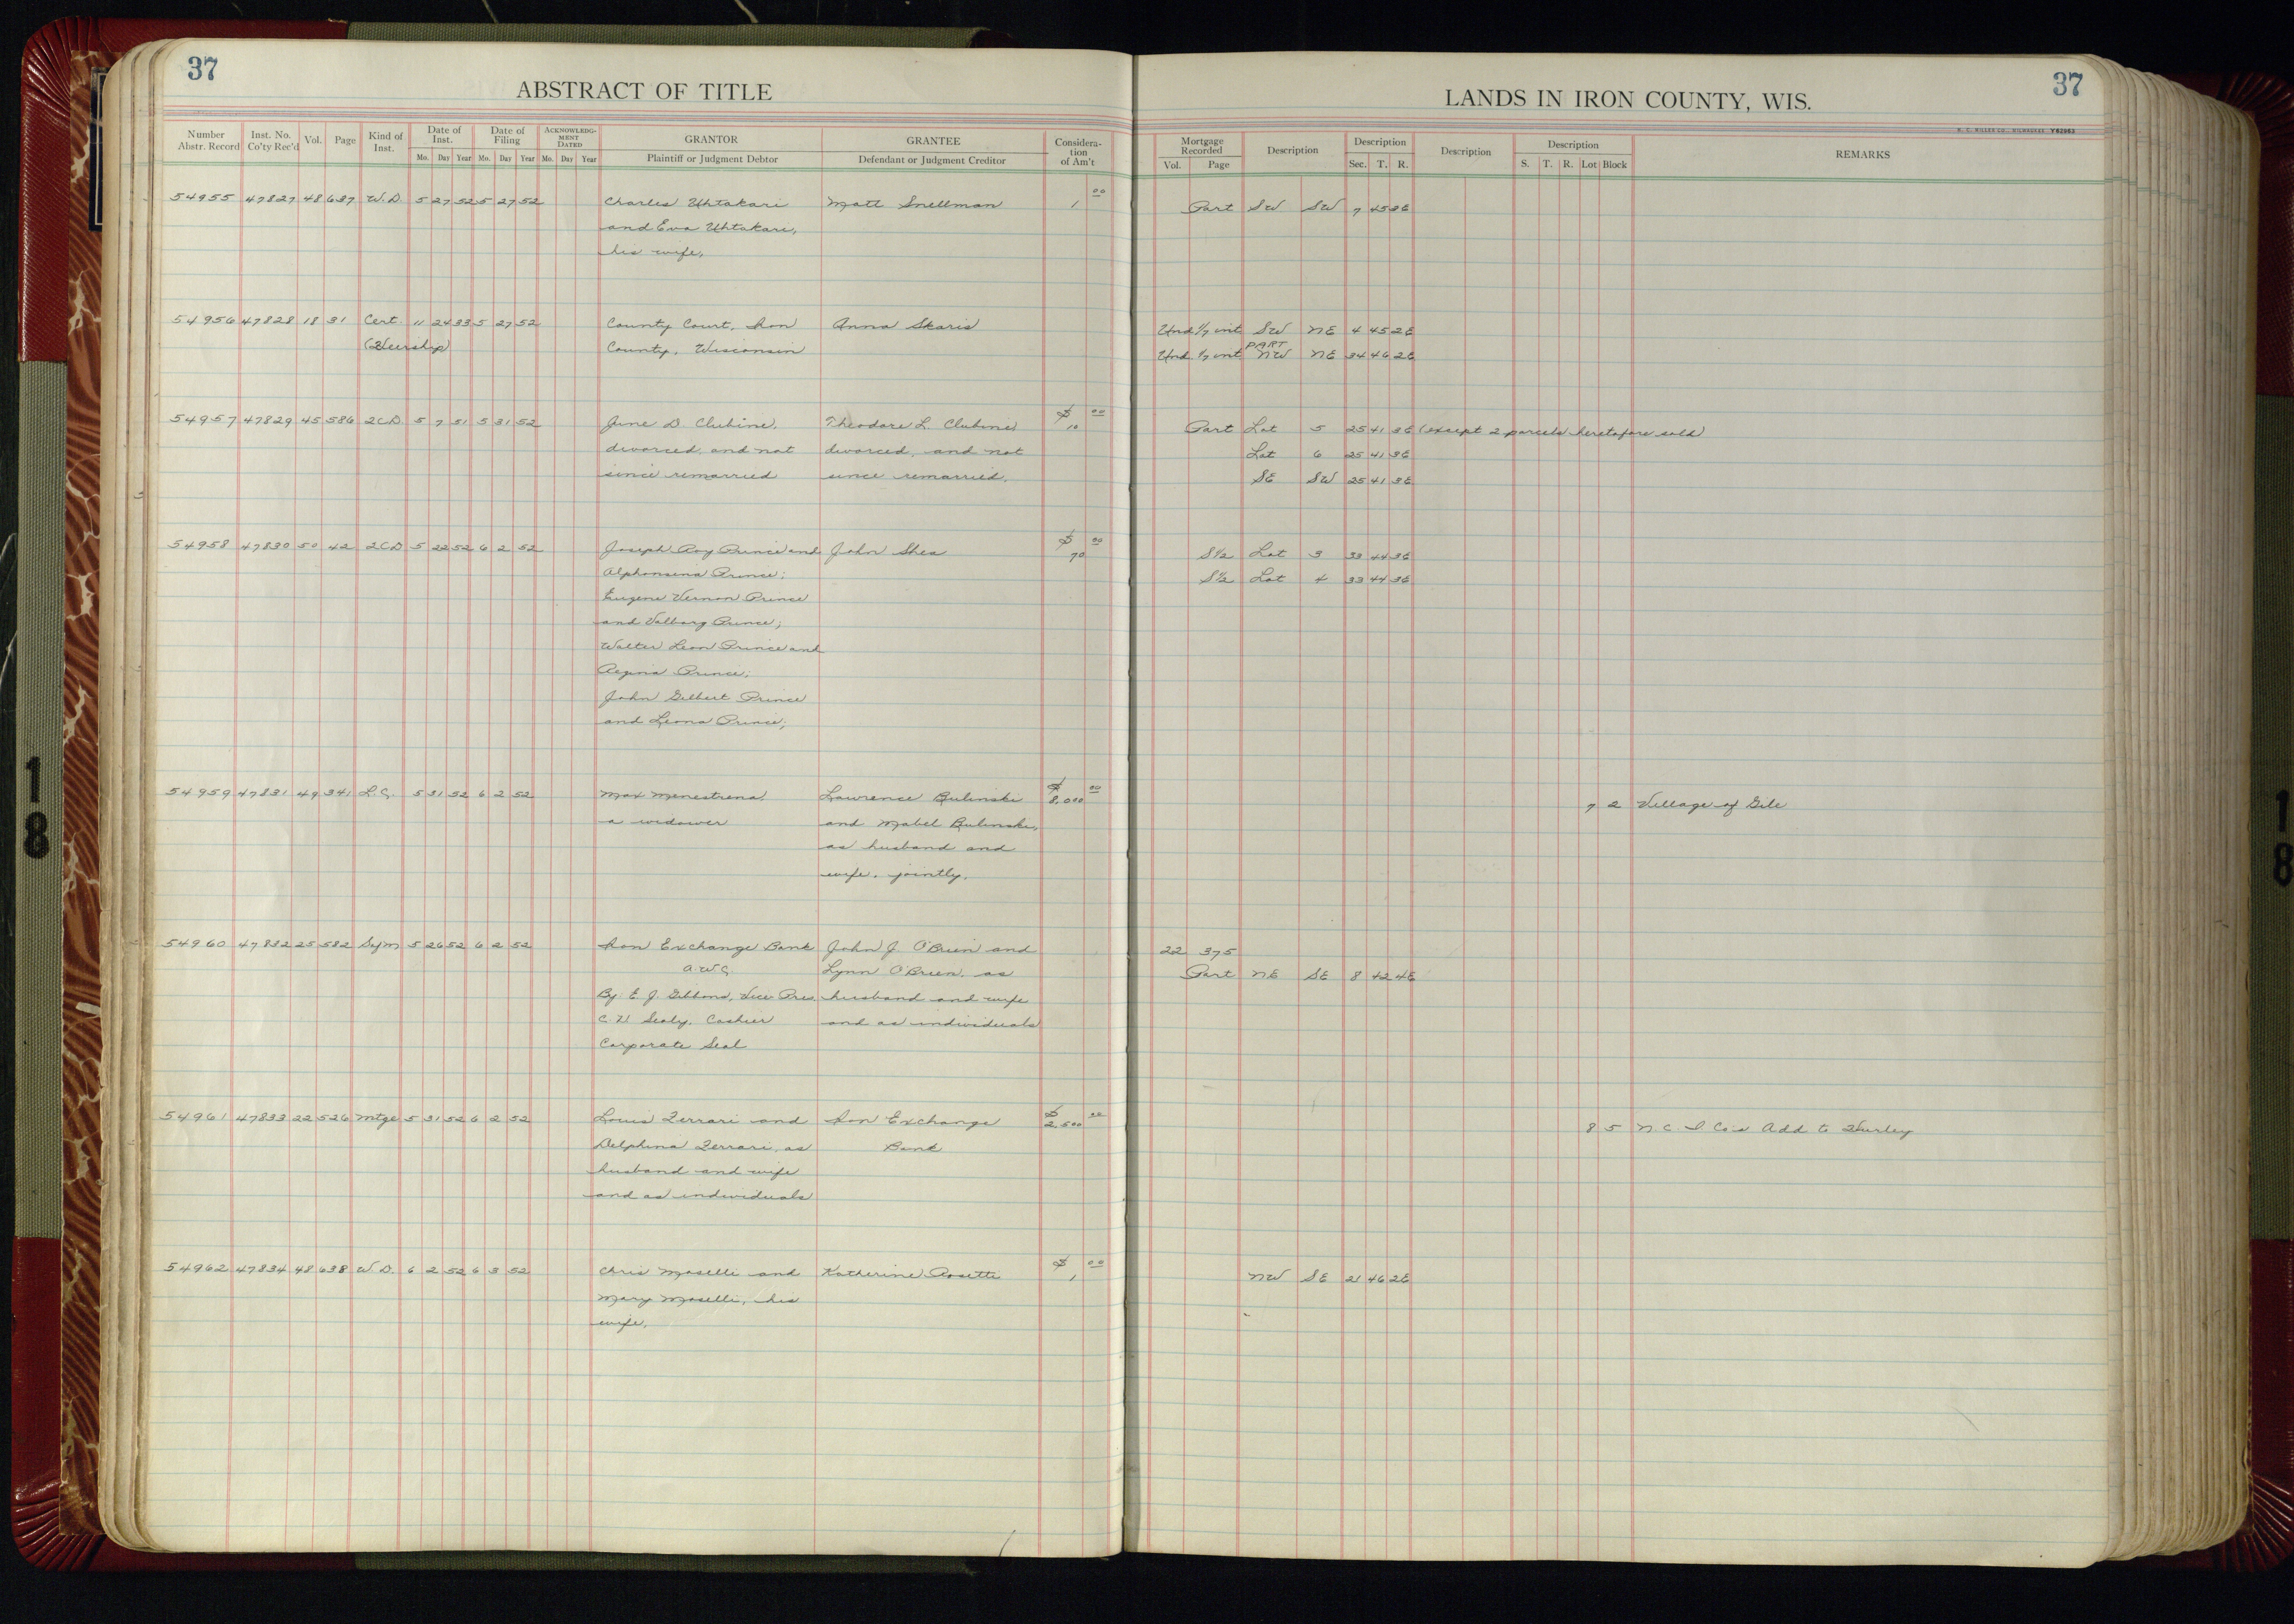 37
ABSTRACT OF TITLE
LANDS IN IRON COUNTY, WIS.
37
H. C. MILLER CO., MILWAUKEE Y62963
Number Abstr. Record | Inst. No. Co'ty Rec'd | Vol. | Page | Kind of Inst. | Date of Inst. Mo. Day Year | Date of Filing Mo. Day Year | ACKNOWLEDGMENT DATED Mo. Day Year | GRANTOR Plaintiff or Judgment Debtor | GRANTEE Defendant or Judgment Creditor | Consideration of Am't | Mortgage Recorded Vol. Page | Description | Description Sec. T. R. | Description | Description S. T. R. Lot Block | REMARKS
54955 47827 48 637 W.D. 5 27 52 5 27 52 Charles Uhtakari Matt Snellman 1 00 Part SW SW 7 45 3E
and Eva Uhtakari,
his wife,
54956 47828 18 31 Cert. 11 24 33 5 27 52 County Court, Iron Anna Skaris Und 1/7 int SW NE 4 45 2E
(Heirship) County, Wisconsin Und 1/7 int PART NW NE 34 46 2E
54957 47829 45 586 2CD 5 7 51 5 31 52 June D. Clubine, Theodore L. Clubine $10 00 Part Lot 5 25 41 3E (except 2 parcels heretofore sold)
divorced, and not divorced, and not Lot 6 25 41 3E
since remarried since remarried. SE SW 25 41 3E
54958 47830 50 42 2CD 5 22 52 6 2 52 Joseph Roy Prince and John Shea $70 00 S1/2 Lot 3 33 44 3E
Alphonsena Prince; S1/2 Lot 4 33 44 3E
Eugene Vernon Prince
and Valborg Prince;
Walter Leon Prince and
Regina Prince;
John Gilbert Prince
and Leona Prince;
54959 47831 49 341 L.C. 5 31 52 6 2 52 Max Menestrena, Lawrence Bulinski $8,000 00 7 2 Village of Gile
a widower and Mabel Bulinski,
as husband and
wife, jointly.
54960 47832 25 582 Sym 5 26 52 6 2 52 Iron Exchange Bank John J. O'Brien and 22 375
Lynn O'Brien, as Part NE SE 8 42 4E
By. E. J. Gibbons, Vice Pres husband and wife
C. N. Sealy, Cashier and as individuals
Corporate Seal
54961 47833 22 526 Mtge 5 31 52 6 2 52 Louis Ferrari and Iron Exchange $2,500 00 8 5 N. C. I. Co's Add to Hurley
Delphina Ferrari, as Bank
husband and wife
and as individuals
54962 47834 48 638 W.D. 6 2 52 6 3 52 Chris Moselli and Katherine Rosetti $1 00 NW SE 21 46 2E
Mary Moselli, his
wife,
18
18